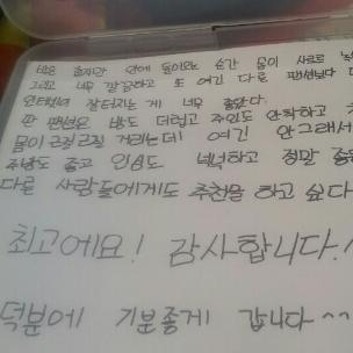 밖은 춥지만 안에 들어오는 순간 몸이 사르르
너무 깔끔하고 또 여긴 다른 펜션보다
인터넷이 잘터지는 게 너무 좋았다.
딴 펜션은 방도 더럽고 주인도 안착하고
몸이 근질근질 거리는데 여긴 안그래서
주님도 좋고 인심도 넉넉하고 정말
다른 사람들에게도 추천을 하고 싶다
최고에요! 감사합니다.
덕분에 기분좋게 갑니다~^^